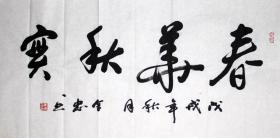 春華秋實
戊戌年秋月